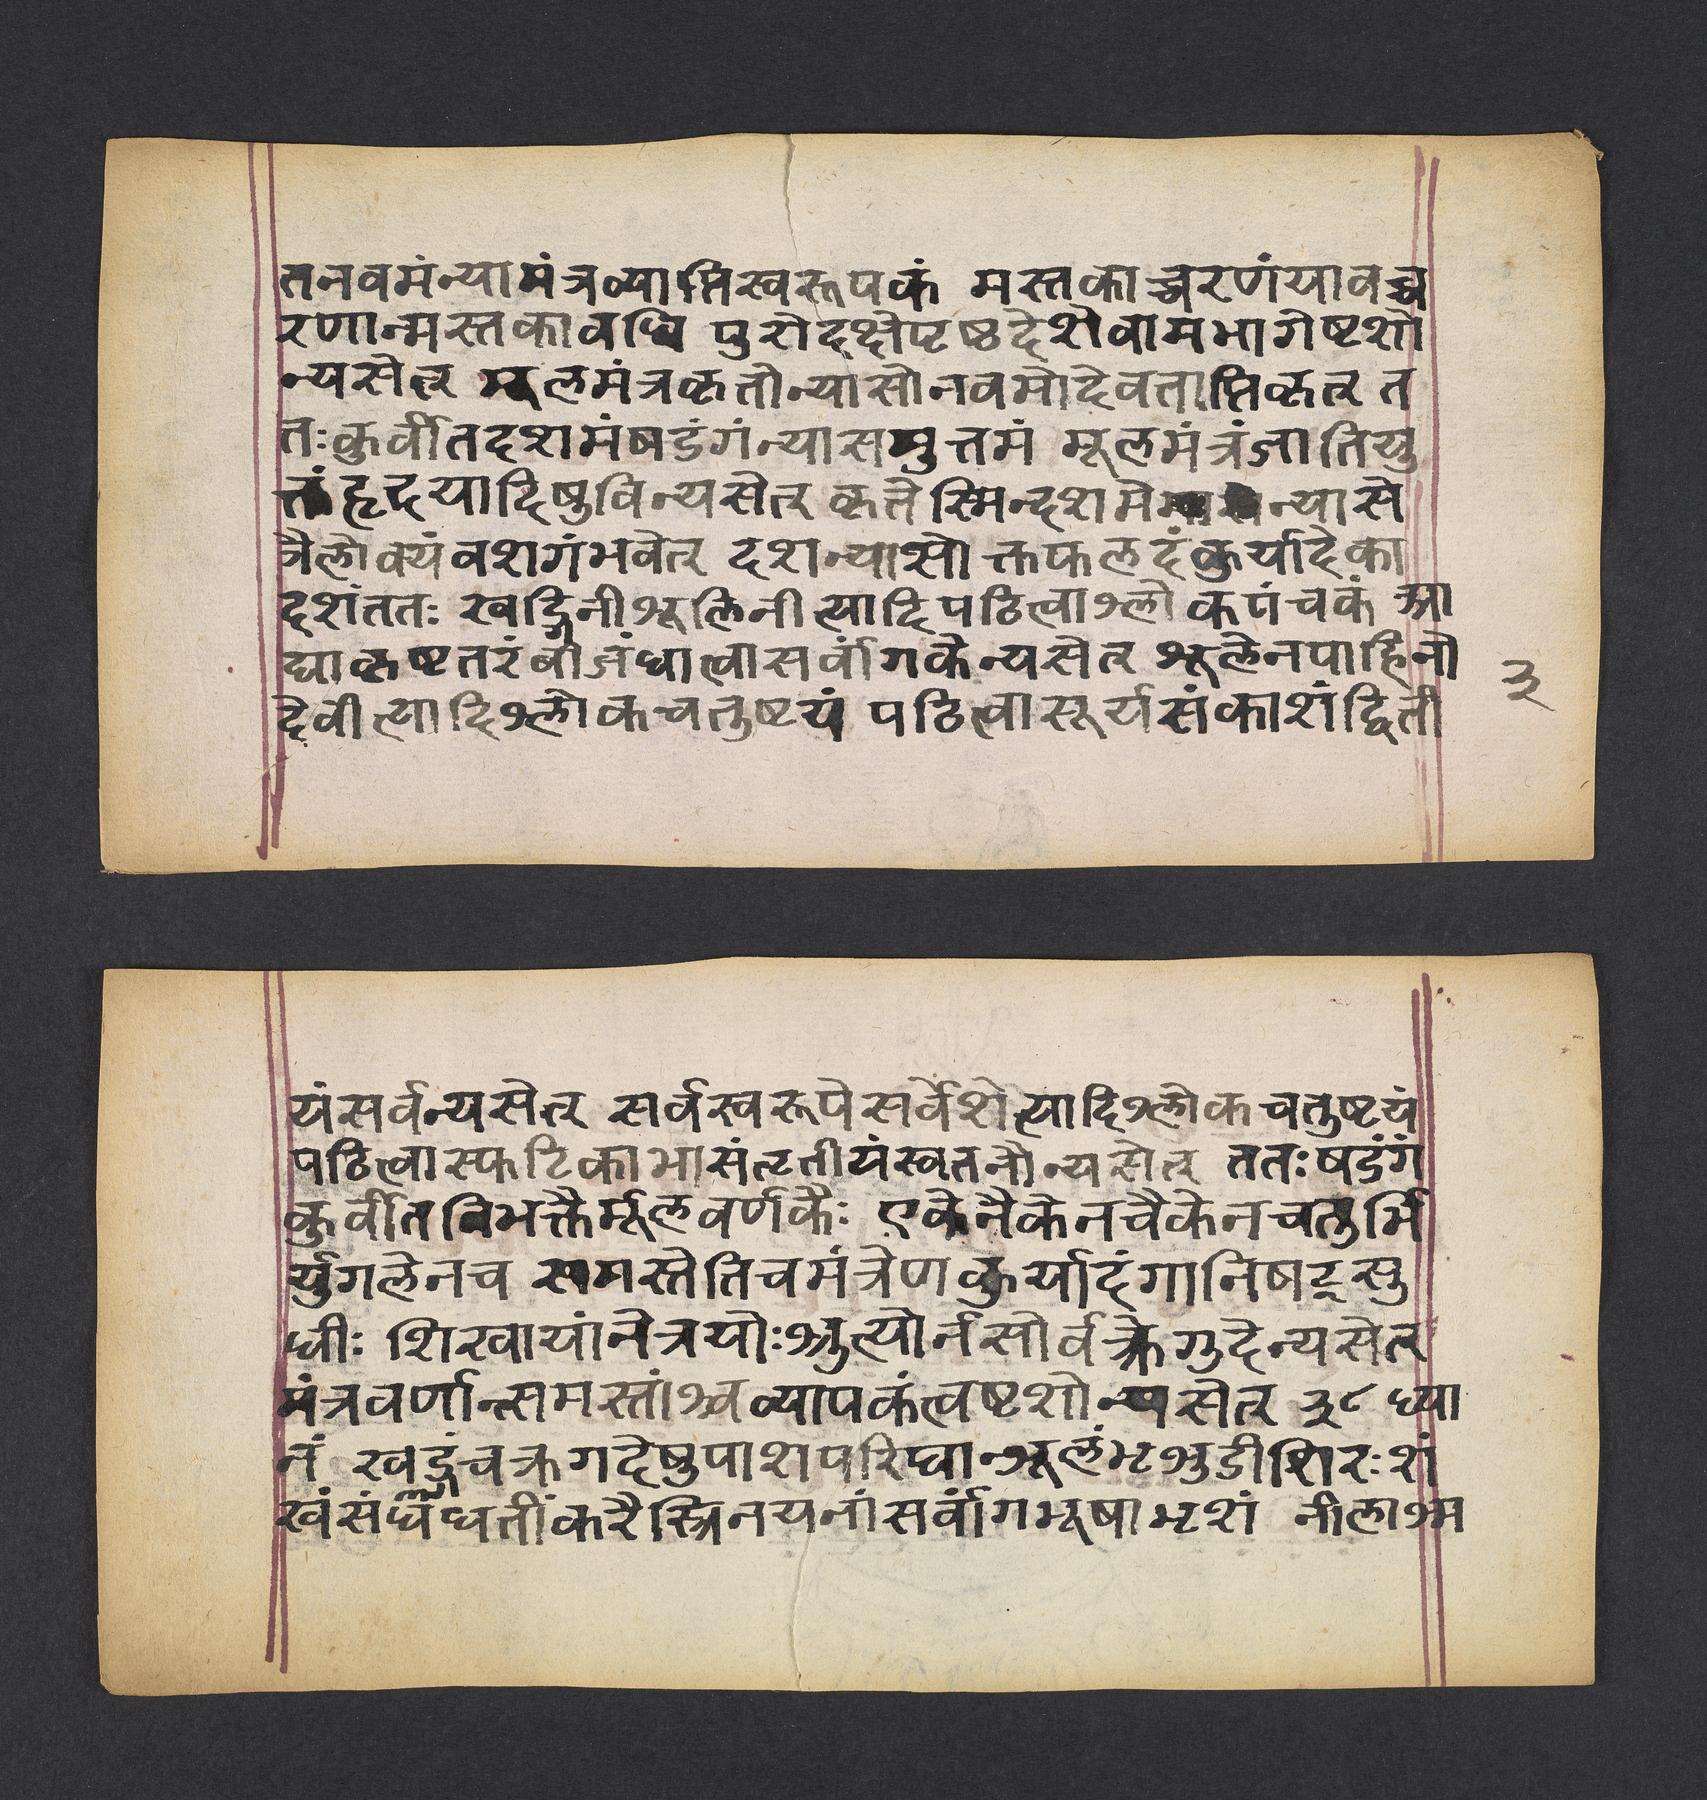 तनवमंन्यामंत्रव्याप्तिस्वरूपकं मस्तकाच्चरणंयावच्च
रणान्मस्तकावधि पुरोदक्षेपृष्ठदेशेवामभागेष्टशो
न्यसेत् मूलमंत्रकृतोन्यासोनवमोदेवताप्तिकृत् त
तःकुर्वीतदशमंषडंगंन्यासमुत्तमं मूलमंत्रंजातियु
क्तंहृदयादिषुविन्यसेत् कृतेस्मिन्दशमे न्यासे
त्रैलोक्यंवशगंभवेत् दशन्यासोक्तफलदंकुर्यादेका
दशंततः खड्गिनीशूलिनीत्यादिपठित्वाश्लोकपंचकं आ
द्याकृष्टतरंबीजंध्यात्वासर्वांगकेन्यसेत् शूलेनपाहिनो
३
देवीत्यादिश्लोकचतुष्टयं पठित्वासूर्यसंकाशंद्विती
यंसर्वन्यसेत् सर्वस्वरूपेसर्वेशेत्यादिश्लोकचतुष्टयं
पठित्वास्फटिकाभासंतृतीयंस्वतनौन्यसेत् ततःषडंगं
कुर्वीतविभक्तैर्मूलवर्णकैः एकेनैकेनचैकेनचतुर्भि
र्युगलेनच समस्तेतिचमंत्रेणकुर्यादंगानिषट्सु
धीः शिखायांनेत्रयोःश्रुत्योर्नसोर्वक्त्रेगुदेन्यसेत्
मंत्रवर्णान्समस्तांश्वव्यापकंत्वष्टशोन्यसेत् ३८ ध्या
नं खड्गंचक्रगदेषुपाशपरिघान्शूलंभृशुडीशिरःशं
खंसंधधतींकरैस्त्रिनयनांसर्वांगभूषाभृशं नीलाश्म